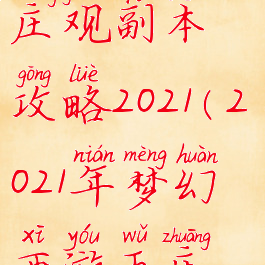 庄观副本
gōng lüè
攻略2021(2
nián mèng huàn
021年梦幻
xī yóu wǔ zhuāng
西游五庄